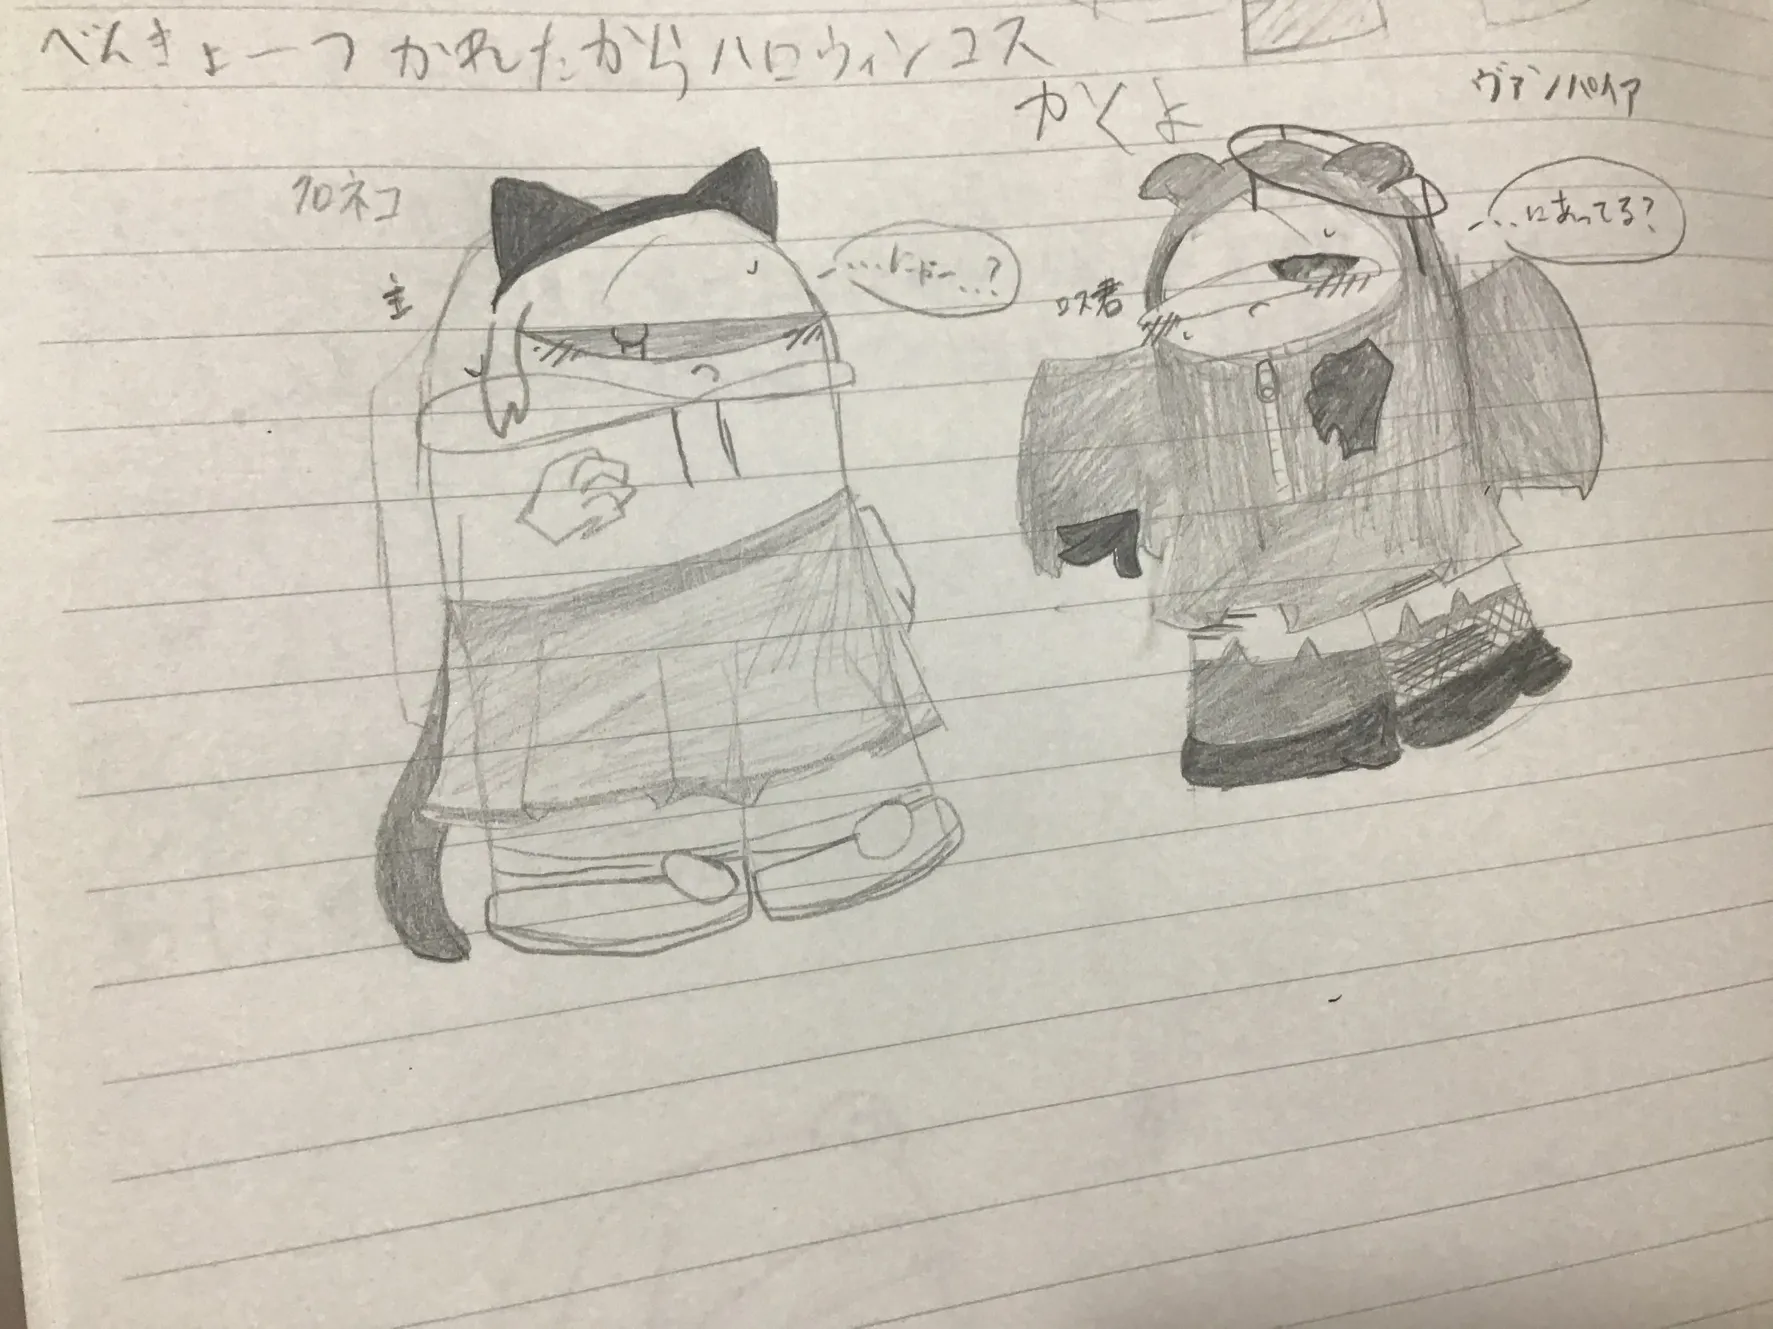 べんきょーつかれたからハロウィンコス
かくよ
ヴァンパイア
クロネコ
主
...にゃー...?
ロス君
...にあってる?